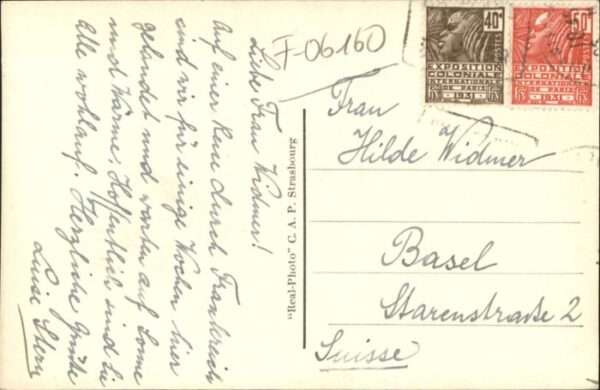 F-06160
Liebe Frau Widmer!
Auf einer Reise durch Frankreich
sind wir für einige Wochen hier
gelandet und warten auf Sonne
und Wärme. Hoffentlich sind Sie
alle wohlauf. Herzliche Grüße
Luise Stern
"Real-Photo" C. A. P. Strasbourg
40c
POSTES
EXPOSITION
COLONIALE
INTERNATIONALE
DE PARIS
1931
50c
EXPOSITION
COLONIALE
INTERNATIONALE
DE PARIS
1931
Frau
Hilde Widmer
Basel
Starenstraße 2
Suisse